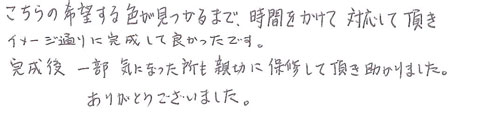 こちらの希望する色が見つかるまで、時間をかけて 対応して頂き
イメージ通りに完成して良かったです。
完成後 一部 気になった所も親切に保修して頂き助かりました。
ありがとうございました。